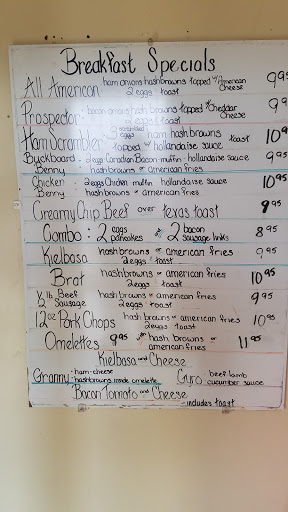 Breakfast Specials
All American ham onions hashbrowns topped w/ American Cheese 9⁹⁵
2 eggs toast
Prospector - bacon onions hash browns topped w/ Cheddar Cheese 9⁹
2 eggs toast
Ham Scrambler 3 scrambled eggs ham hash browns toast 10⁹
topped w/ hollandaise
Buckboard : 2 egg Canadian Bacon - muffin - hollandaise sauce 9⁹⁵
Benny hashbrowns or american fries
Chicken : 2 eggs Chicken muffin hollandaise sauce 10⁹⁵
Benny hashbrowns or american fries
Creamy Chip Beef over texas toast 8⁹⁵
Combo : 2 eggs 2 pancakes 2 bacon 2 sausage links 8⁹⁵
Kielbasa hashbrowns or american fries 9⁹⁵
2 eggs toast
Brat hashbrowns or american fries 10⁹⁵
2 eggs toast
½ lb Beef Sausage hashbrowns or american fries 9⁹⁵
2 eggs toast
12oz Pork Chops hashbrowns or american fries 10⁹⁵
2 eggs toast
Omelettes 9⁹⁵ with hash browns or american fries 11⁹⁵
Kielbasa and Cheese
Granny - ham - cheese
- hashbrowns inside omelette
Gyro beef lamb
cucumber sauce
Bacon Tomato and Cheese
- includes toast